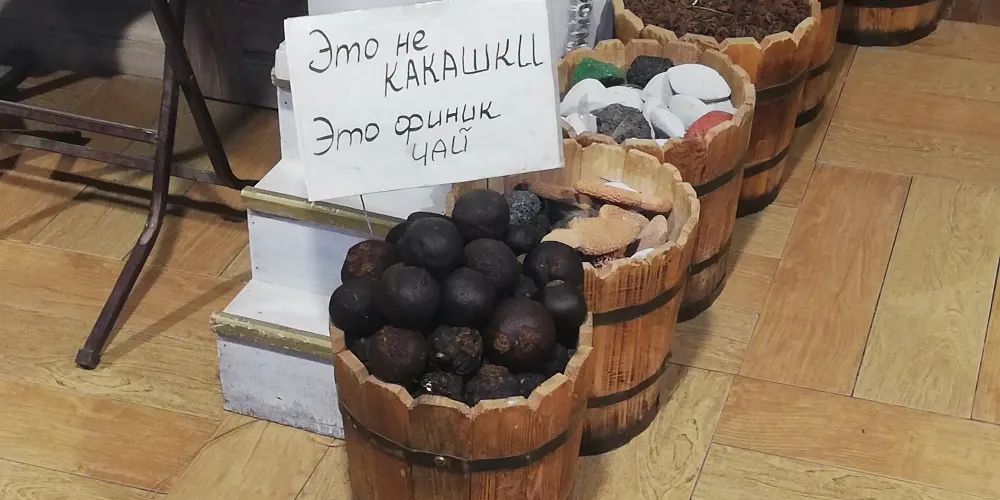 Это не
КАКАШКИ
Это финик
ЧАЙ